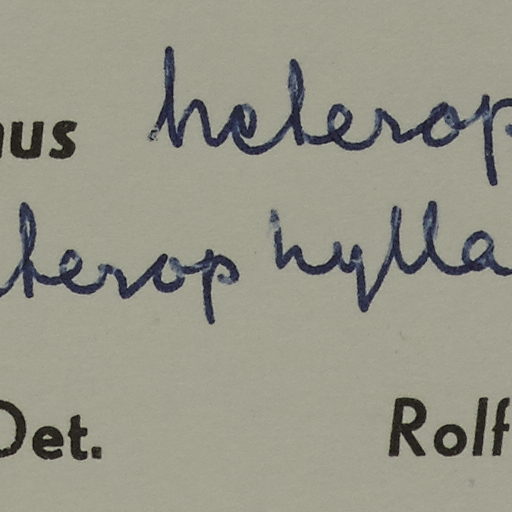 nus heterop
terophylla
Det. Rolf